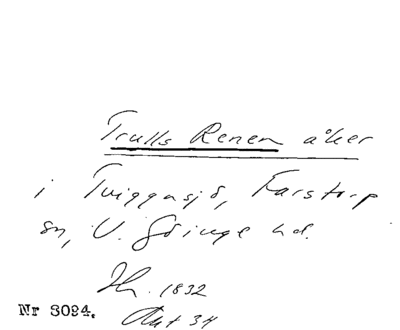 Trulls Renen åker
i Tviggasjö, Farstorp
sn, V. Göinge hd.
Ih. 1832
Akt 34
Nr 3094.